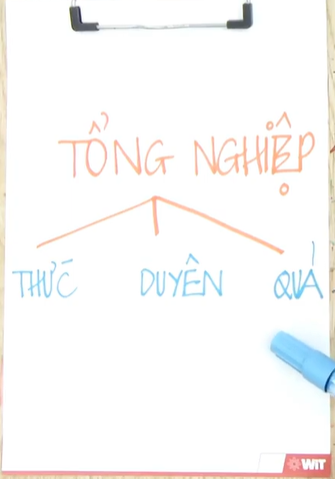 TỔNG NGHIỆP
THỨC DUYÊN QUẢ
WIT